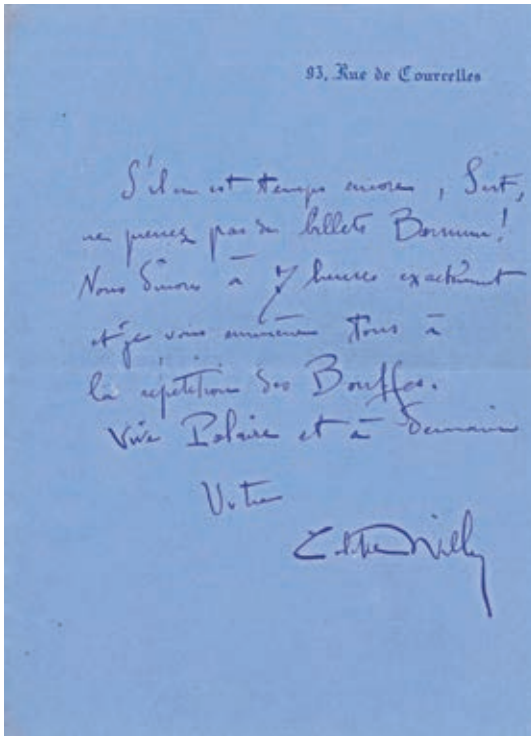 93, Rue de Courcelles
S'il en est temps encore, Sert,
ne prenez pas de billets Barnum!
Nous dînons à 7 heures exactement
et je vous emmène tous à
la répétition des Bouffes.
Vive Polaire et à demain
Votre
Colette Willy